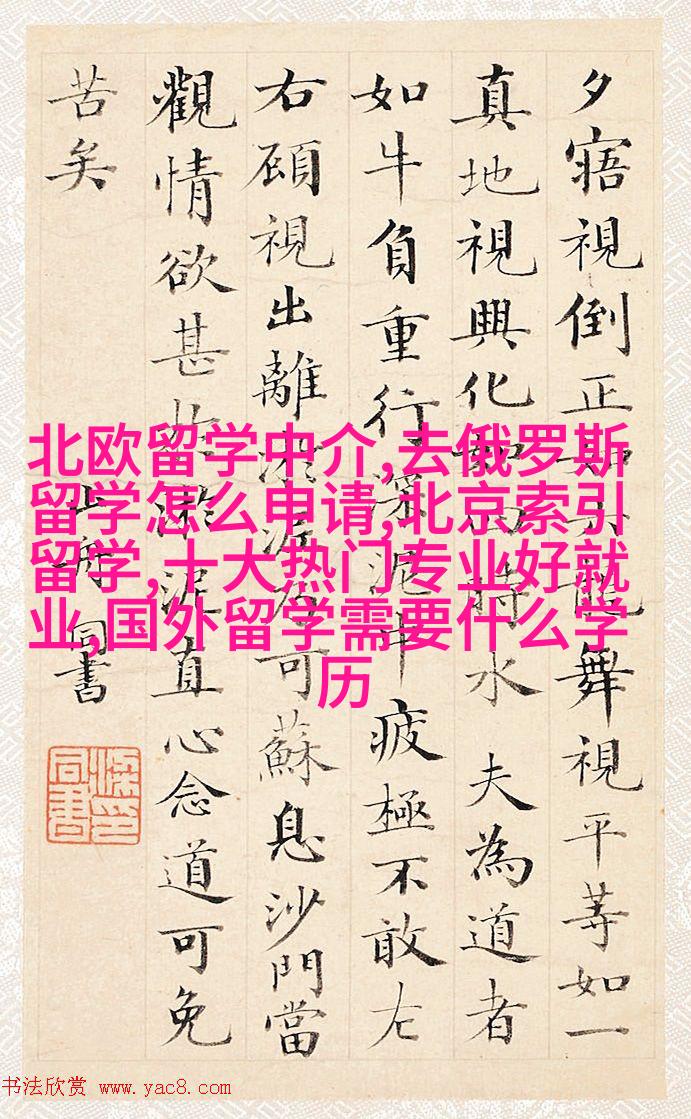 夕寤視倒正如六龍舞視平等如一
真地視興化如四時水 夫為道者
如牛負重行深泥中疲極不敢左
右顧視出離淤泥乃可蘇息沙門當
觀情欲甚於淤泥直心念道可免
苦矣
山舟同書
北欧留学中介,去俄罗斯
留学怎么申请,北京索引
留学,十大热门专业好就
业,国外留学需要什么学
历
书法欣赏 www.yac8.com